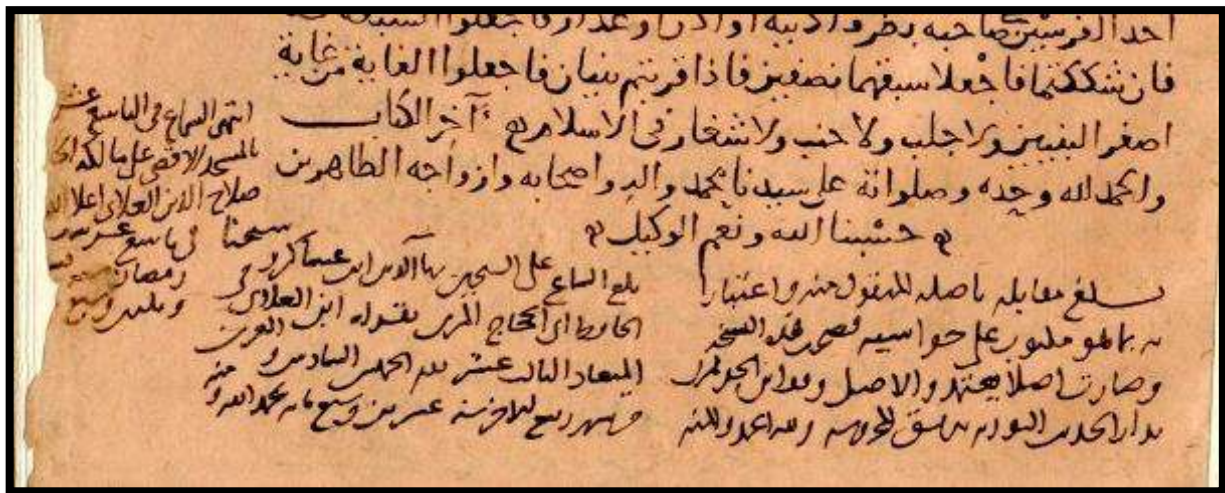 احد الفرسين صاحبه بطرف اذنيه او اذن او عذار فاجعلوا السبقة
فان شككتما فاجعلا سبقهما نصفين فاذا قرنتم ثنيان فاجعلوا الغاية من غاية
اصغر الثنيين ولا جلب ولا جنب ولا شغار في الاسلام ه آخر الكتاب
والحمد لله وحده وصلواته على سيدنا محمد واله واصحابه وازواجه الطاهرين
ه حسبنا الله ونعم الوكيل ه
بلغ مقابله باصله المنقول منه واعتبارا
به بما هو مكتوب على حواشيه فصحت هذه النسخه
وصارت اصلا يعتمد والاصل
بدار الحديث النوريه بدمشق المحروسه ولله الحمد والمنه
بلغ السماع على الشيخين بها الدين ابن عساكر و
الحافظ ابي الحجاج المزي بقراه ابن العلائي
الميعاد الثالث عشر يوم الخميس السادس
من شهر ربيع الاخر سنه عشرين وسبع مايه
انتهى السماع في التاسع عشر
بالمسجد الاقصى على مالكه
صلاح الدين العلائي
شيخنا
في تاسع عشر
رمضان